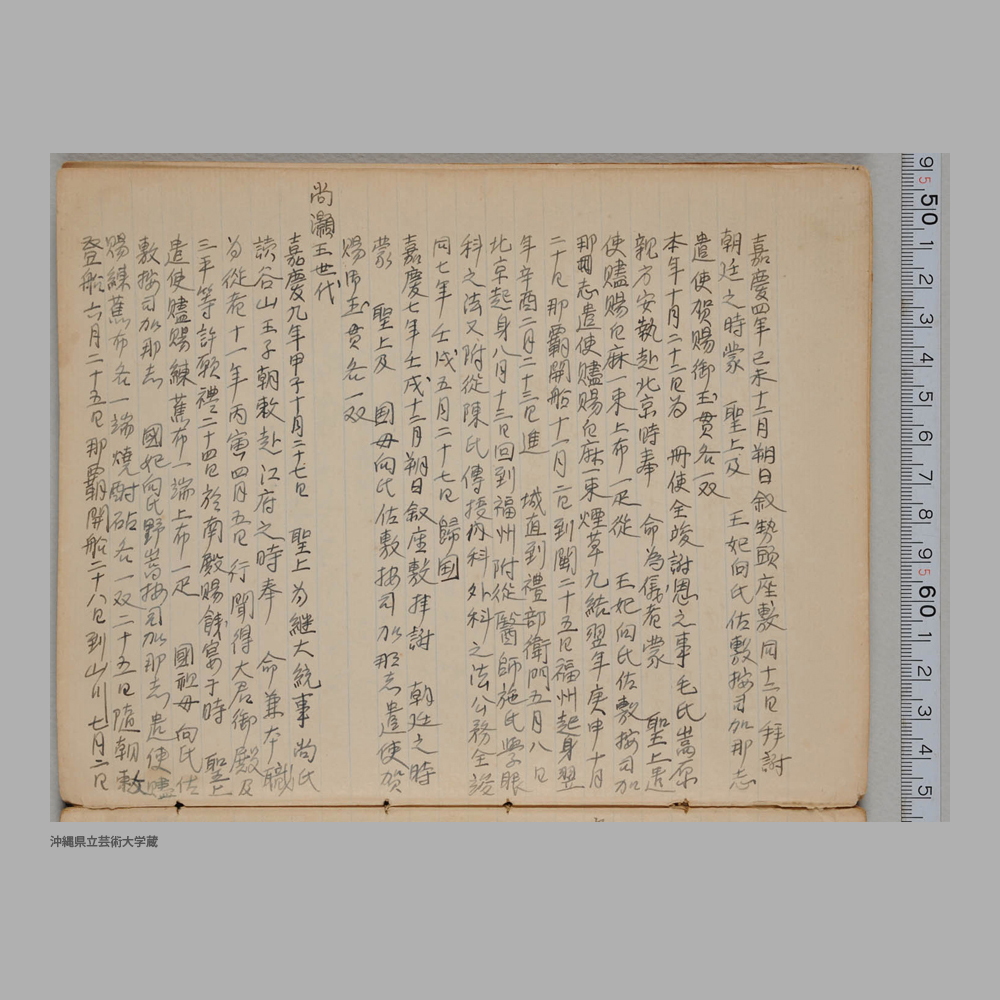 嘉慶四年己未十二月朔日叙勢頭座敷同十二日拜謝
朝廷之時蒙　聖上及　王妃向氏佐敷按司加那志
遣使賀賜御玉貫各一双
本年十月二十二日為　冊使全竣謝恩之事毛氏嵩原
親方安執赴北京時奉　命為儀者蒙　聖上遣
使賜白麻一束上布一疋従　王妃向氏佐敷按司加
那志遣使賜白麻一束煙草九結翌年庚申十月
二十日那覇開船十一月二日到閩二十五日福州起身翌
年辛酉二月二十三日進　城直到禮部衙門五月八日
北京起身八月十三日回到福州附從醫師施氏學眼
科之法又附從陳氏傳授内科外科之法公務全竣
同七年壬戌五月二十七日歸国
嘉慶七年壬戌十二月朔日叙座敷拝謝　朝廷之時
蒙　聖上及　国母向氏佐敷按司加那志遣使賀
賜御玉貫各一双
尚灝王世代
嘉慶九年甲子十月二十七日　聖上為継大統事尚氏
読谷山王子朝敕赴江府之時奉　命兼本職
為從者十一年丙寅四月五日行聞得大君御殿及
三平等許願禮二十四日於南殿賜餞宴于時　聖上
遣使贐賜練蕉布一端上布一疋　國祖母向氏佐
敷按司加那志　國妃向氏野嵩按司加那志遣使贐
賜練蕉布各一端燒酎砧各一双二十五日隨朝敕
登船六月二十五日那覇開船二十八日到山川七月二日
沖縄県立芸術大学蔵